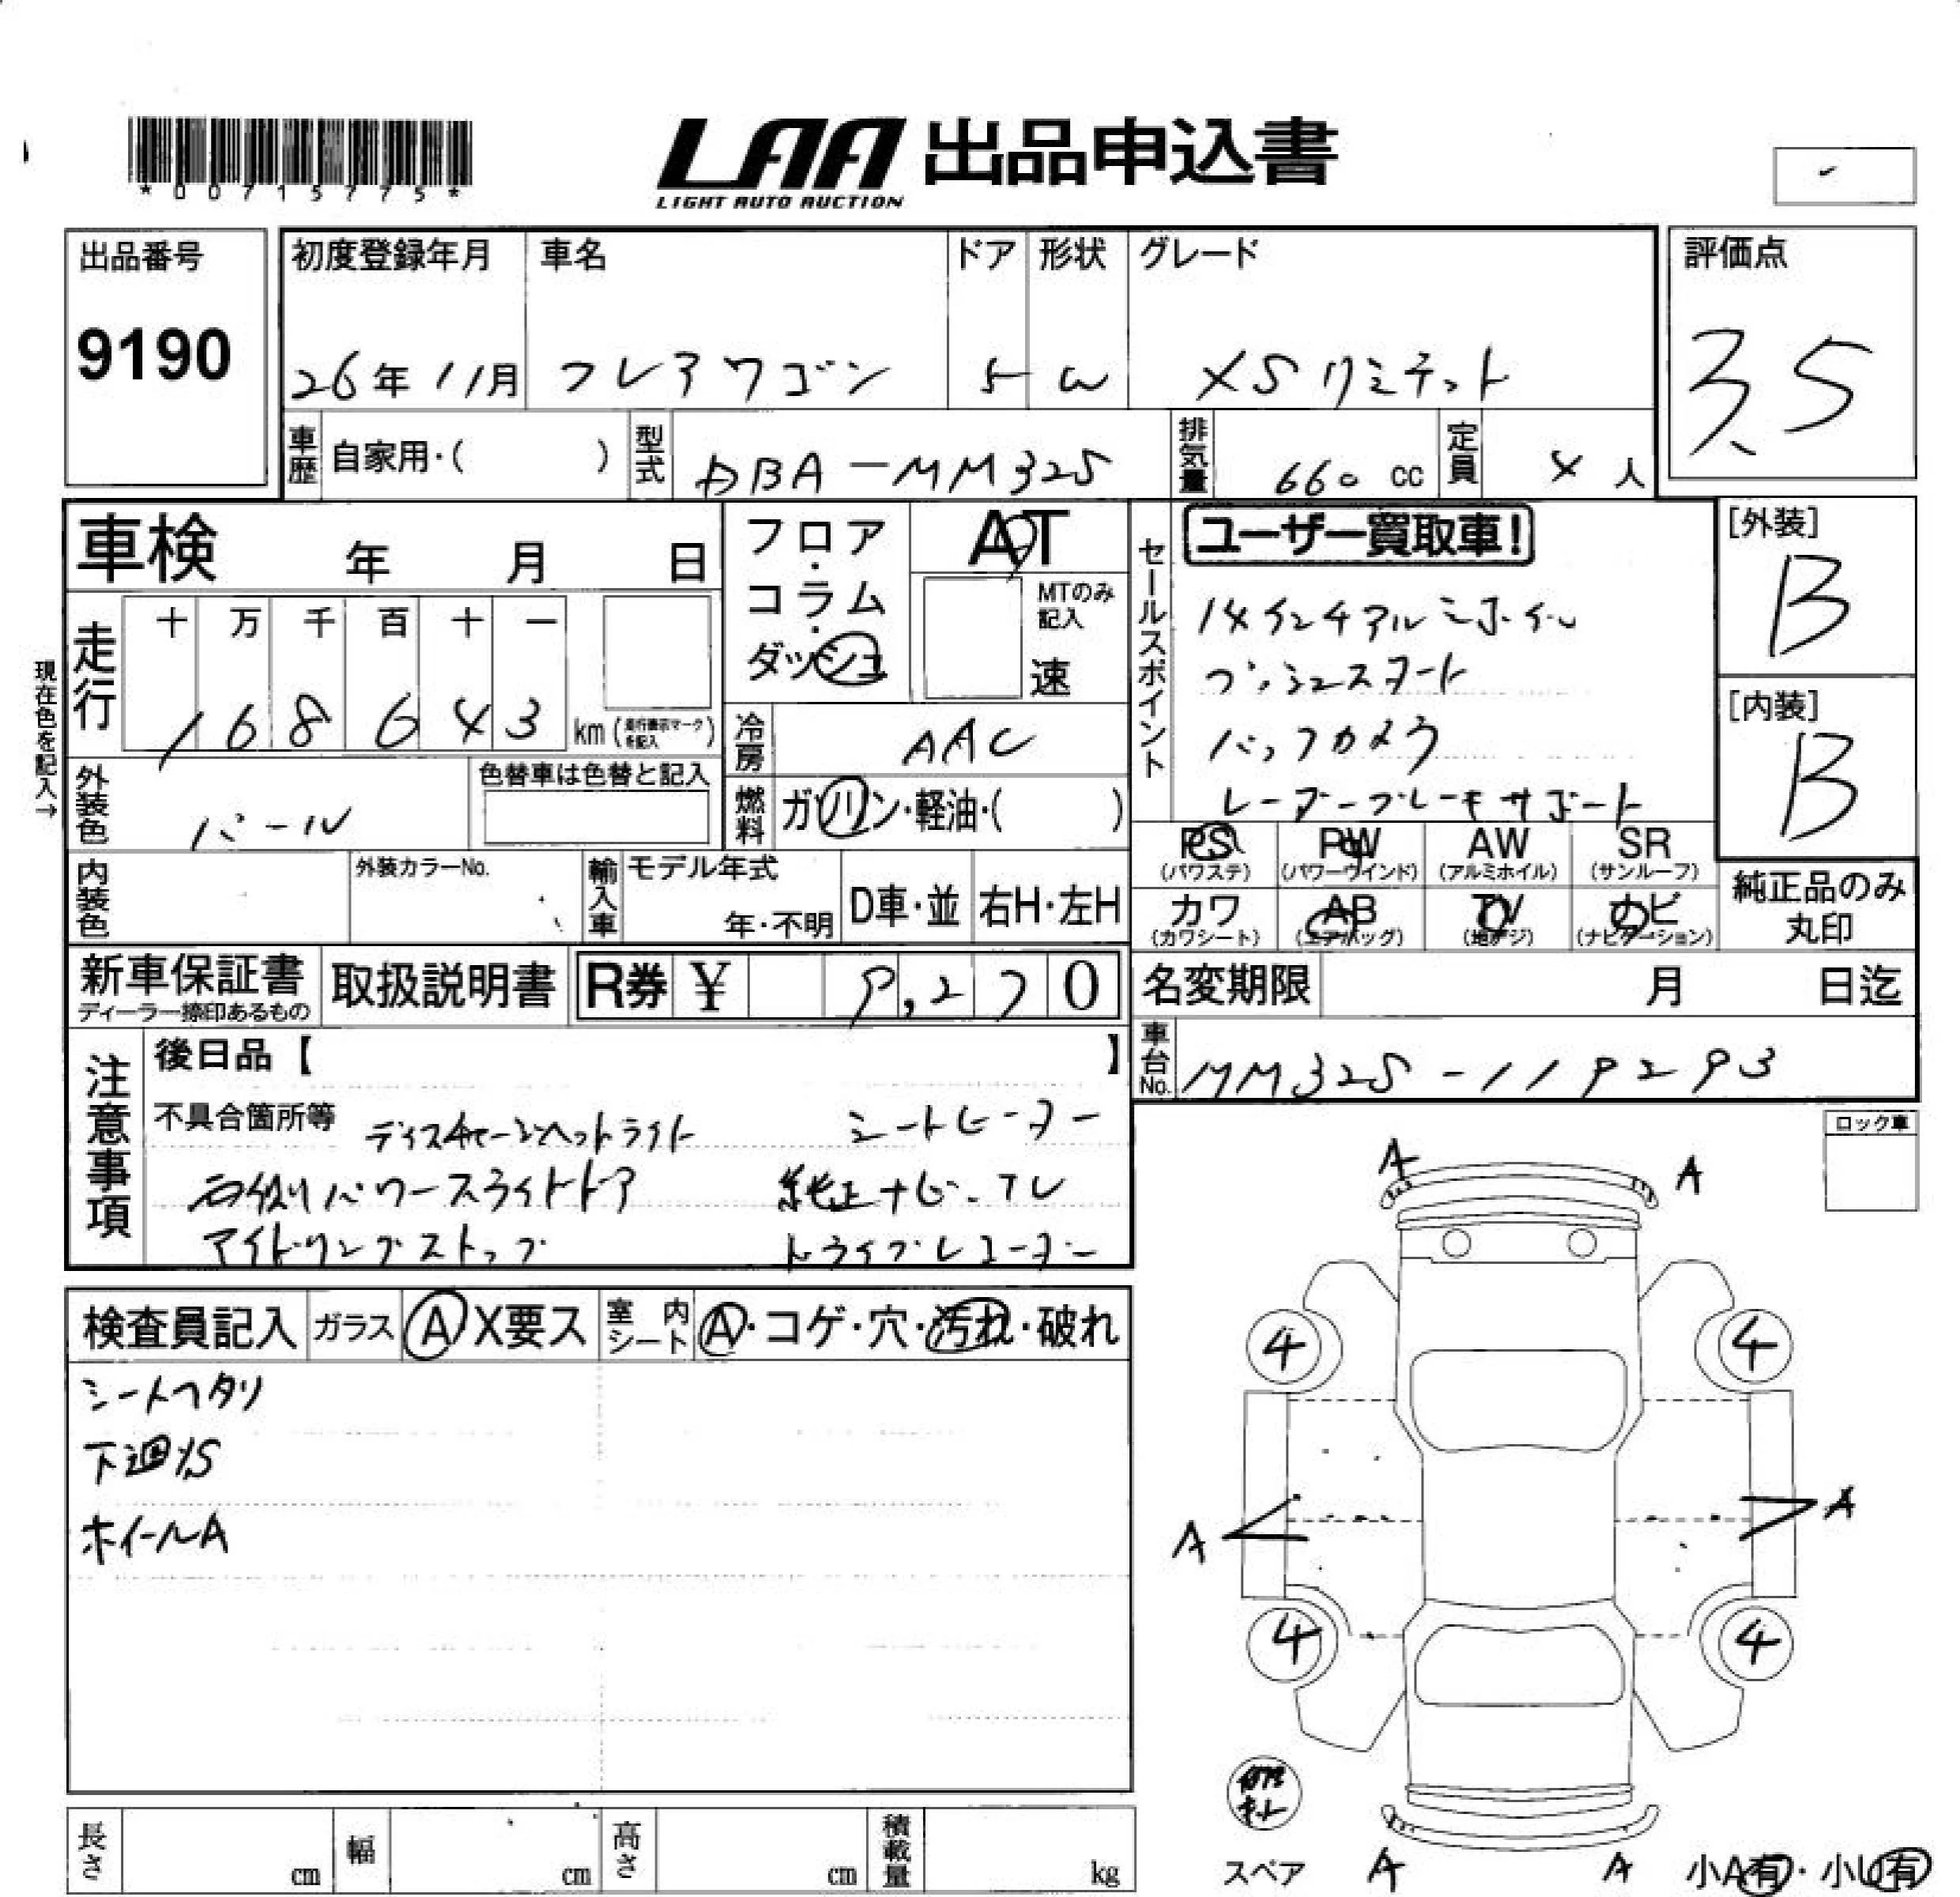 *00715775*
LAA 出品申込書
LIGHT AUTO AUCTION
出品番号
9190
初度登録年月
26年11月
車名
フレアワゴン
ドア
5
形状
W
グレード
XSリミテット
評価点
3.5
車歴 自家用・( )
型式 DBA-MM32S
排気量 660 cc
定員 4人
車検 年 月 日
フロア・コラム・ダッシュ
AT
MTのみ記入
速
セールスポイント
ユーザー買取車!
14インチアルミホイル
プッシュスタート
バックカメラ
レーダーブレーキサポート
[外装]
B
[内装]
B
現在色を記入→
走行
十 万 千 百 十 一
168643 km (走行表示マークを記入)
冷房 AAC
外装色 パール
色替車は色替と記入
燃料 ガソリン・軽油・( )
PS (パワステ)
PW (パワーウインド)
AW (アルミホイル)
SR (サンルーフ)
カワ (カワシート)
AB (エアバッグ)
TV (地デジ)
ナビ (ナビゲーション)
純正品のみ丸印
内装色
外装カラーNo.
輸入車
モデル年式
年・不明
D車・並
右H・左H
新車保証書
ディーラー捺印あるもの
取扱説明書
R券 ¥ 9,270
名変期限 月 日迄
車台No. MM32S-119293
注意事項
後日品【 】
不具合箇所等
ディスチャージヘットライト シートヒーター
右側パワースライドドア 純正ナビ・テレ
アイドリングストップ ドライブレコーダー
ロック車
検査員記入
ガラス A X要ス
室内シート A・コゲ・穴・汚れ・破れ
シートヘタリ
下廻りS
ホイールA
A A
4 4
A A
4 4
スペア
A A
小A有・小U有
長さ cm
幅 cm
高さ cm
積載量 kg